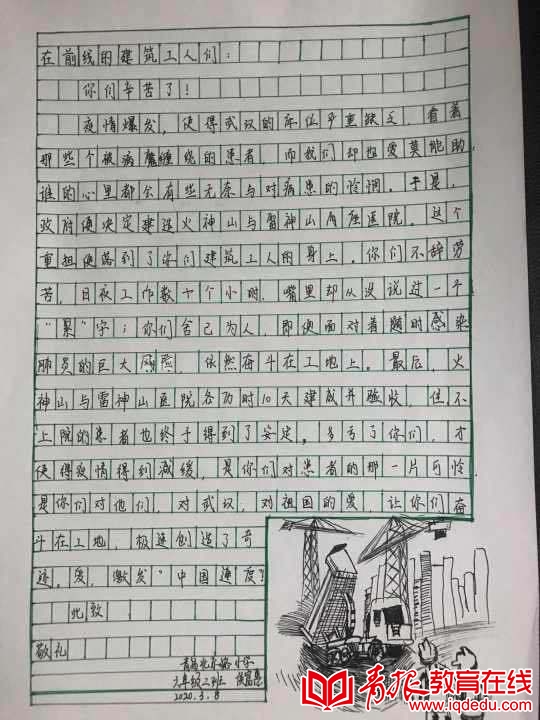 在前线的建筑工人们：
你们辛苦了！
疫情爆发，使得武汉的床位严重缺乏，看着
那些个被病魔缠绕的患者，而我们却也爱莫能助
谁的心里都尔有些无奈与对病患的怜悯。于是，
政府便决定建造火神山与雷神山两座医院。这个
重担便落到了你们建筑工人的身上。你们不辞劳
苦，日夜工作数十个小时，嘴里却从没说过一个
“累”字；你们舍己为人，即便面对着随时感染
肺炎的巨大风险，依然奋斗在工地上。最后，火
神山与雷神山医院各历时10天建成并验收，住不
上院的患者也终于得到了安定。多亏了你们，才
使得疫情得到减缓，是你们对患者的那一片可怜
是你们对他们，对武汉，对祖国的爱，让你们奋
斗在工地，极速创造了奇
迹。爱，激发“中国速度”！
此致
敬礼
六年级三班
2020.3.8
青报教育在线
www.iqdedu.com